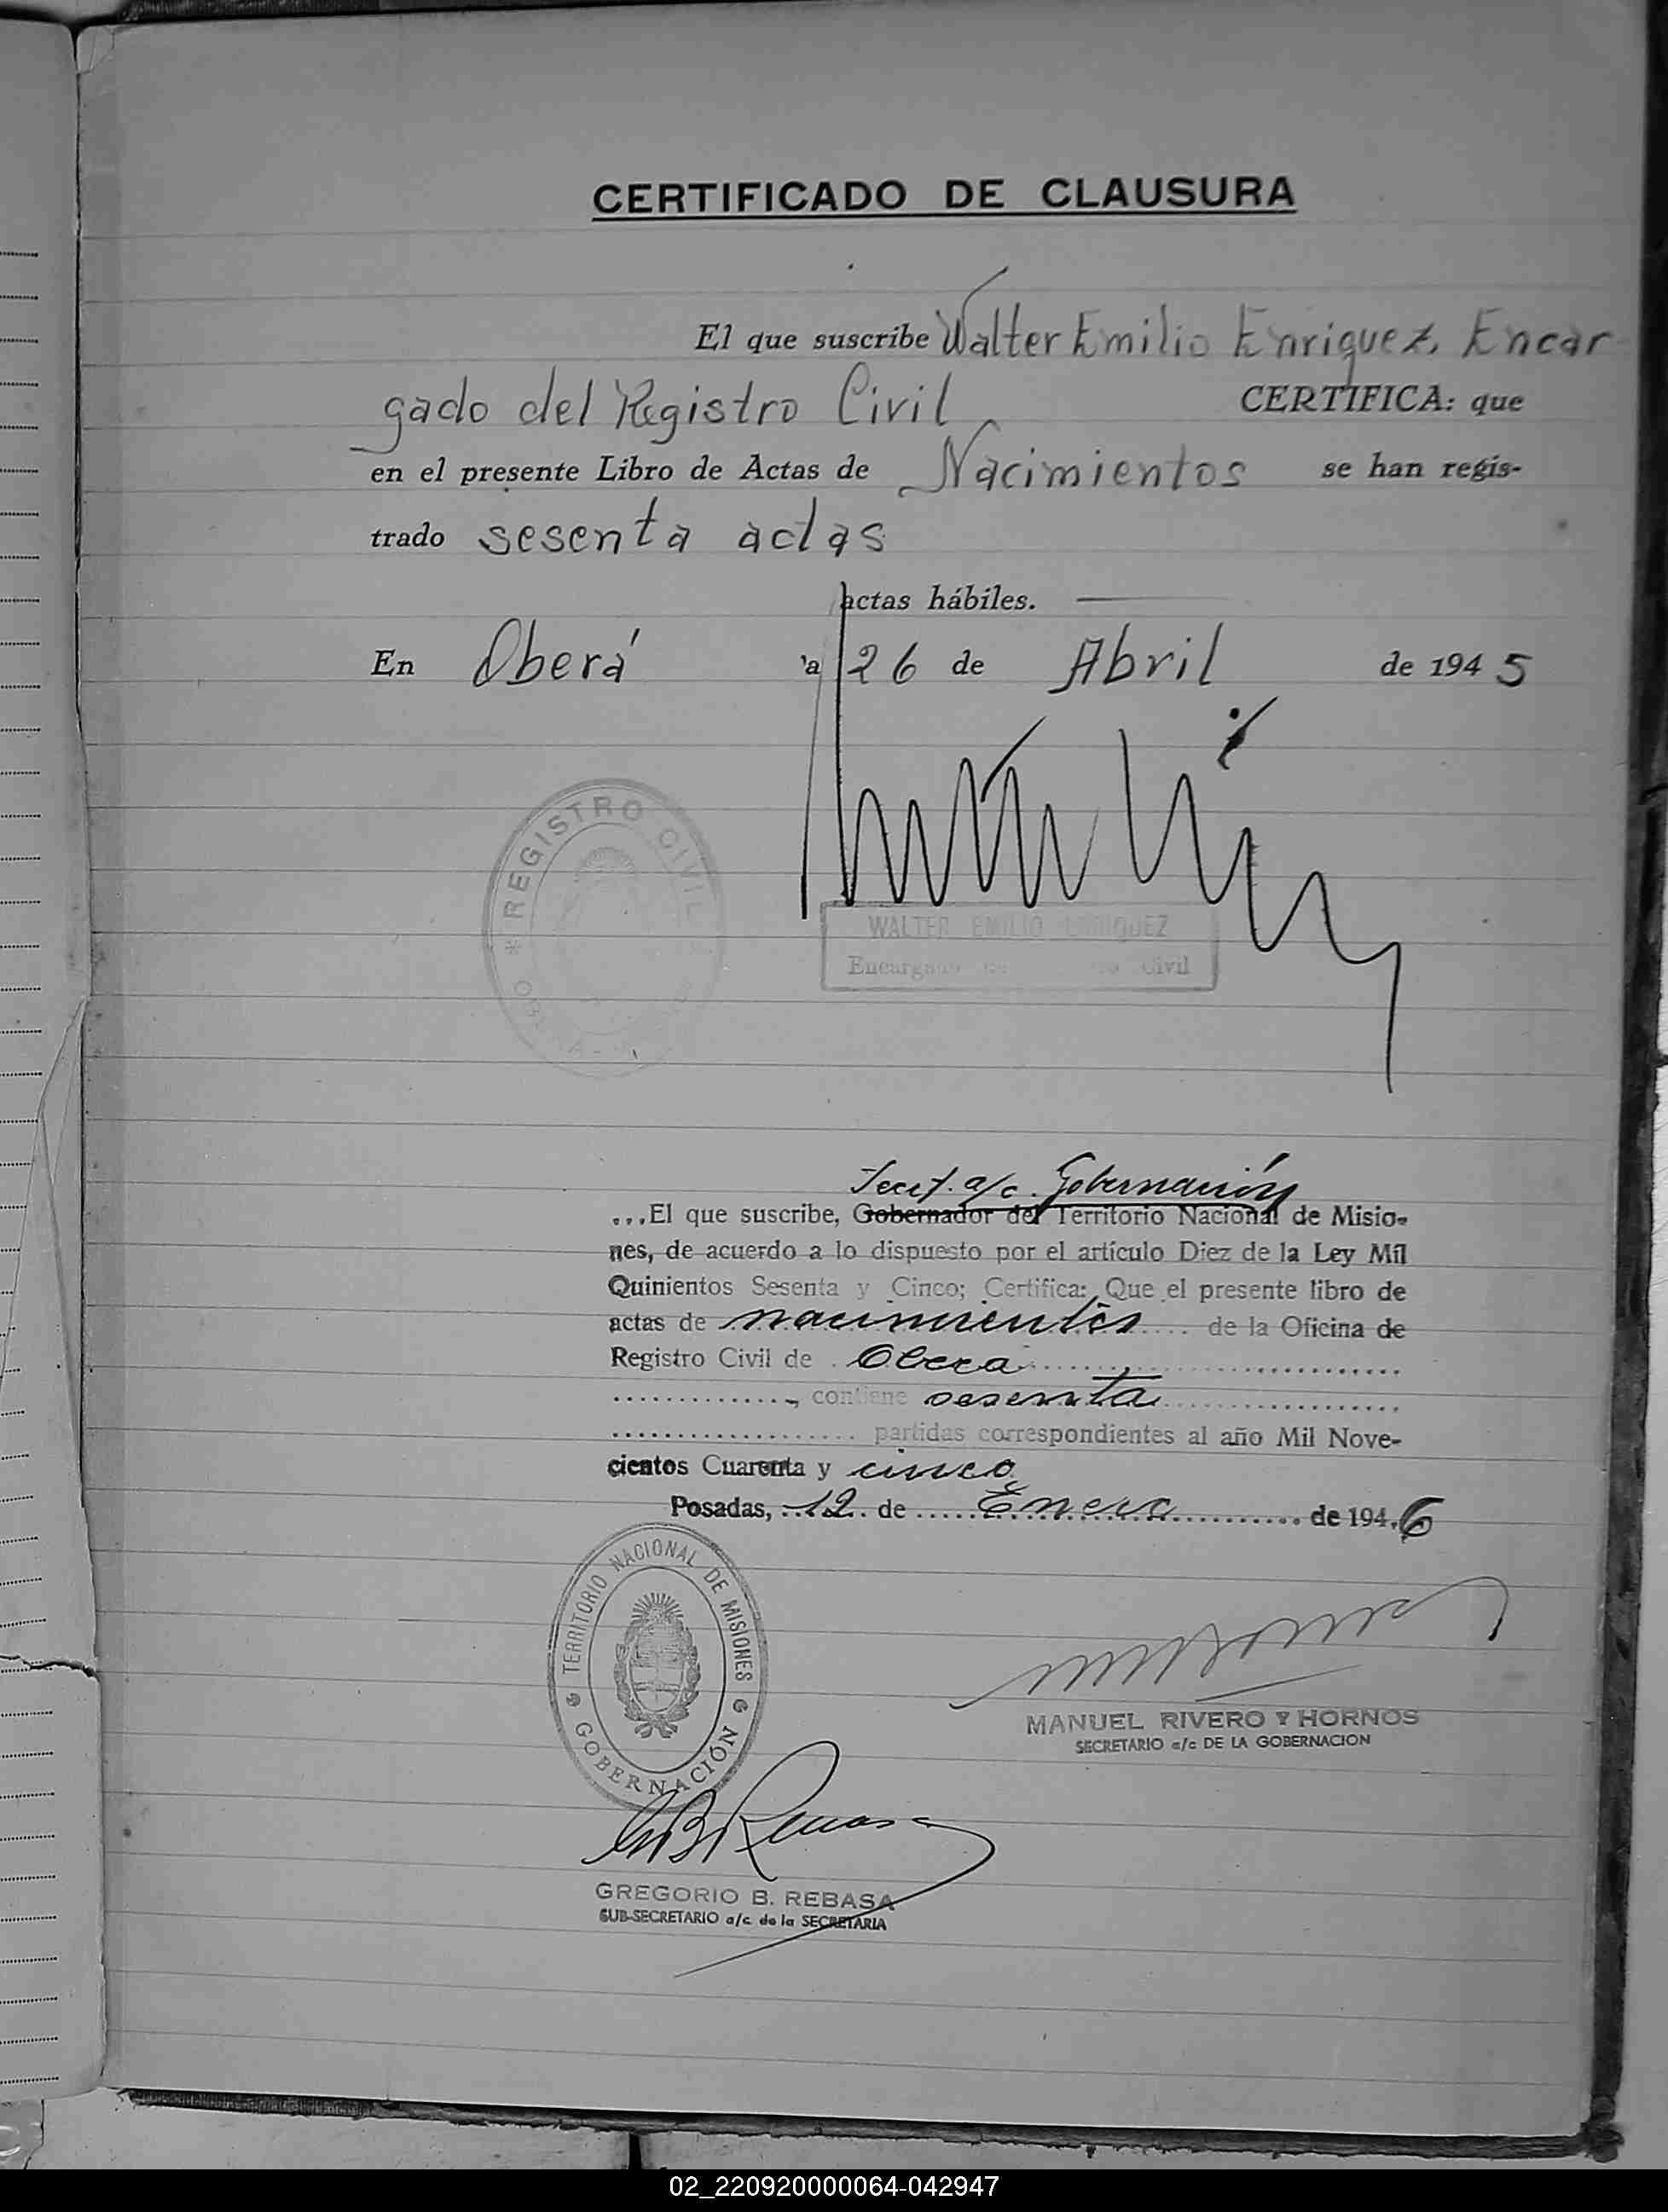 CERTIFICADO DE CLAUSURA
El que suscribe Walter Emilio Enriquez, Encar
gado del Registro Civil CERTIFICA: que
en el presente Libro de Actas de Nacimientos se han regis-
trado sesenta actas
actas hábiles.
En Oberá a 26 de Abril de 1945
REGISTRO CIVIL
WALTER EMILIO ENRIQUEZ
Encargado Civil
Secret. a/c. Gobernación
...El que suscribe, Gobernador del Territorio Nacional de Misio-
nes, de acuerdo a lo dispuesto por el artículo Diez de la Ley Mil
Quinientos Sesenta y Cinco; Certifica: Que el presente libro de
actas de nacimientos .... de la Oficina de
Registro Civil de . Obera
, contiene sesenta
partidas correspondientes al año Mil Nove-
cientos Cuarenta y cinco
Posadas, 12 de Enero de 1946
TERRITORIO NACIONAL DE MISIONES
GOBERNACIÓN
MANUEL RIVERO Y HORNOS
SECRETARIO a/c DE LA GOBERNACION
GREGORIO B. REBASA
SUB-SECRETARIO a/c de la SECRETARIA
02_220920000064-042947